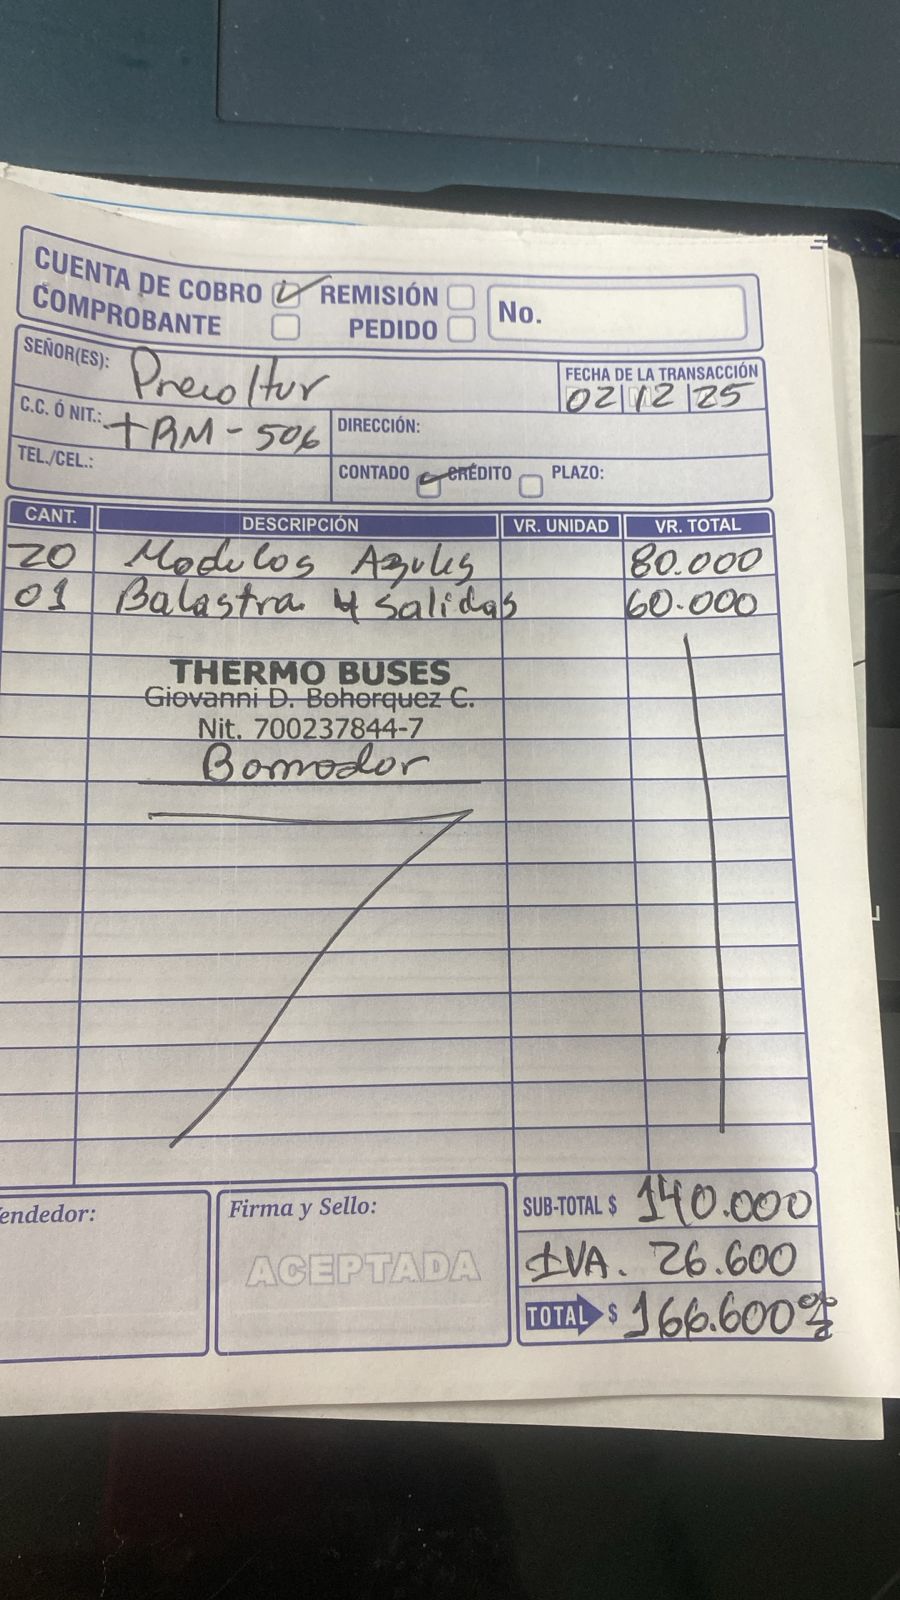 CUENTA DE COBRO REMISIÓN
COMPROBANTE PEDIDO
No.
SEÑOR(ES): Precoltur
FECHA DE LA TRANSACCIÓN
02 12 25
C.C. Ó NIT.: TRM-506
DIRECCIÓN:
TEL./CEL.:
CONTADO CRÉDITO PLAZO:
CANT. DESCRIPCIÓN VR. UNIDAD VR. TOTAL
20 Modulos Azules 80.000
01 Balastra 4 salidas 60.000
THERMO BUSES
Giovanni D. Bohorquez C.
Nit. 700237844-7
Bomodor
endedor:
Firma y Sello:
ACEPTADA
SUB-TOTAL $ 140.000
IVA. 26.600
TOTAL $ 166.600